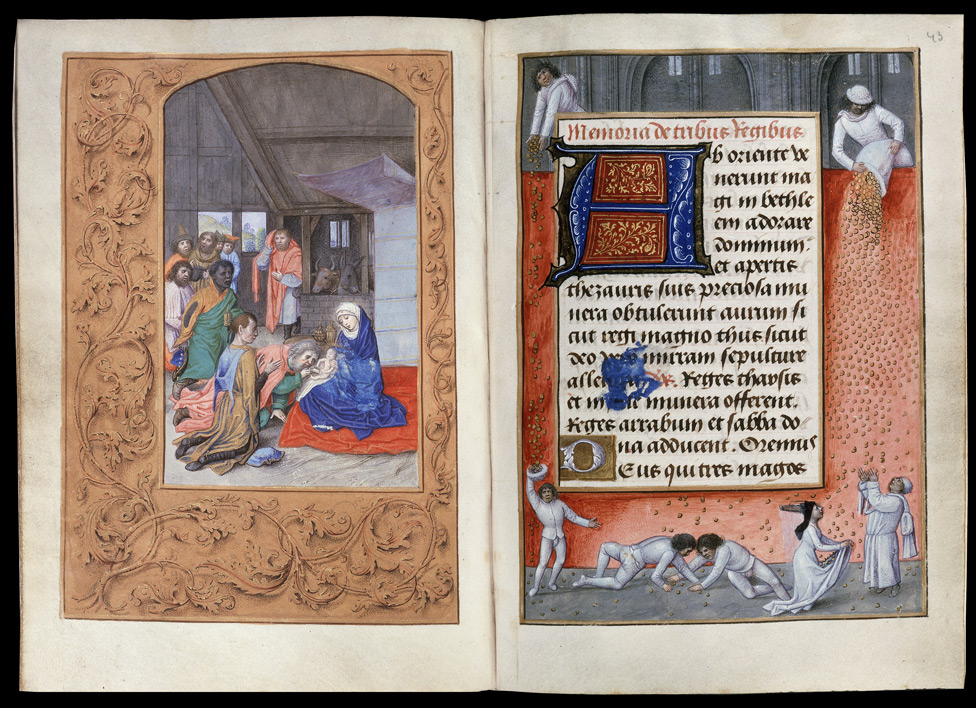 43
Memoria de tribus Regibus
Ab oriente ve
nerunt ma
gi in bethle
em adorare
dominum.
et apertis
thezauris suis preciosa mu
nera obtulerunt aurum si
cut regi magno thus sicut
deo mirram sepulture
alle Reges tharsis
et munera offerent.
Reges arrabum et sabba do
na adducent. Oremus
Deus qui tres magos